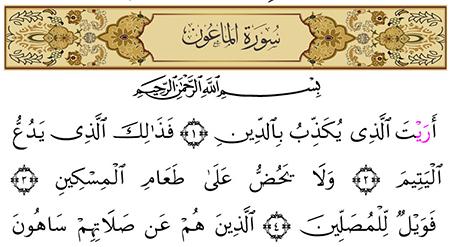 سُورَةُ المَاعُونِ
بِسْمِ ٱللَّهِ ٱلرَّحْمَٰنِ ٱلرَّحِيمِ
أَرَيْتَ ٱلَّذِى يُكَذِّبُ بِٱلدِّينِ ﴿١﴾ فَذَٰلِكَ ٱلَّذِى يَدُعُّ
ٱلْيَتِيمَ ﴿٢﴾ وَلَا يَحُضُّ عَلَىٰ طَعَامِ ٱلْمِسْكِينِ ﴿٣﴾
فَوَيْلٌ لِّلْمُصَلِّينَ ﴿٤﴾ ٱلَّذِينَ هُمْ عَن صَلَاتِهِمْ سَاهُونَ